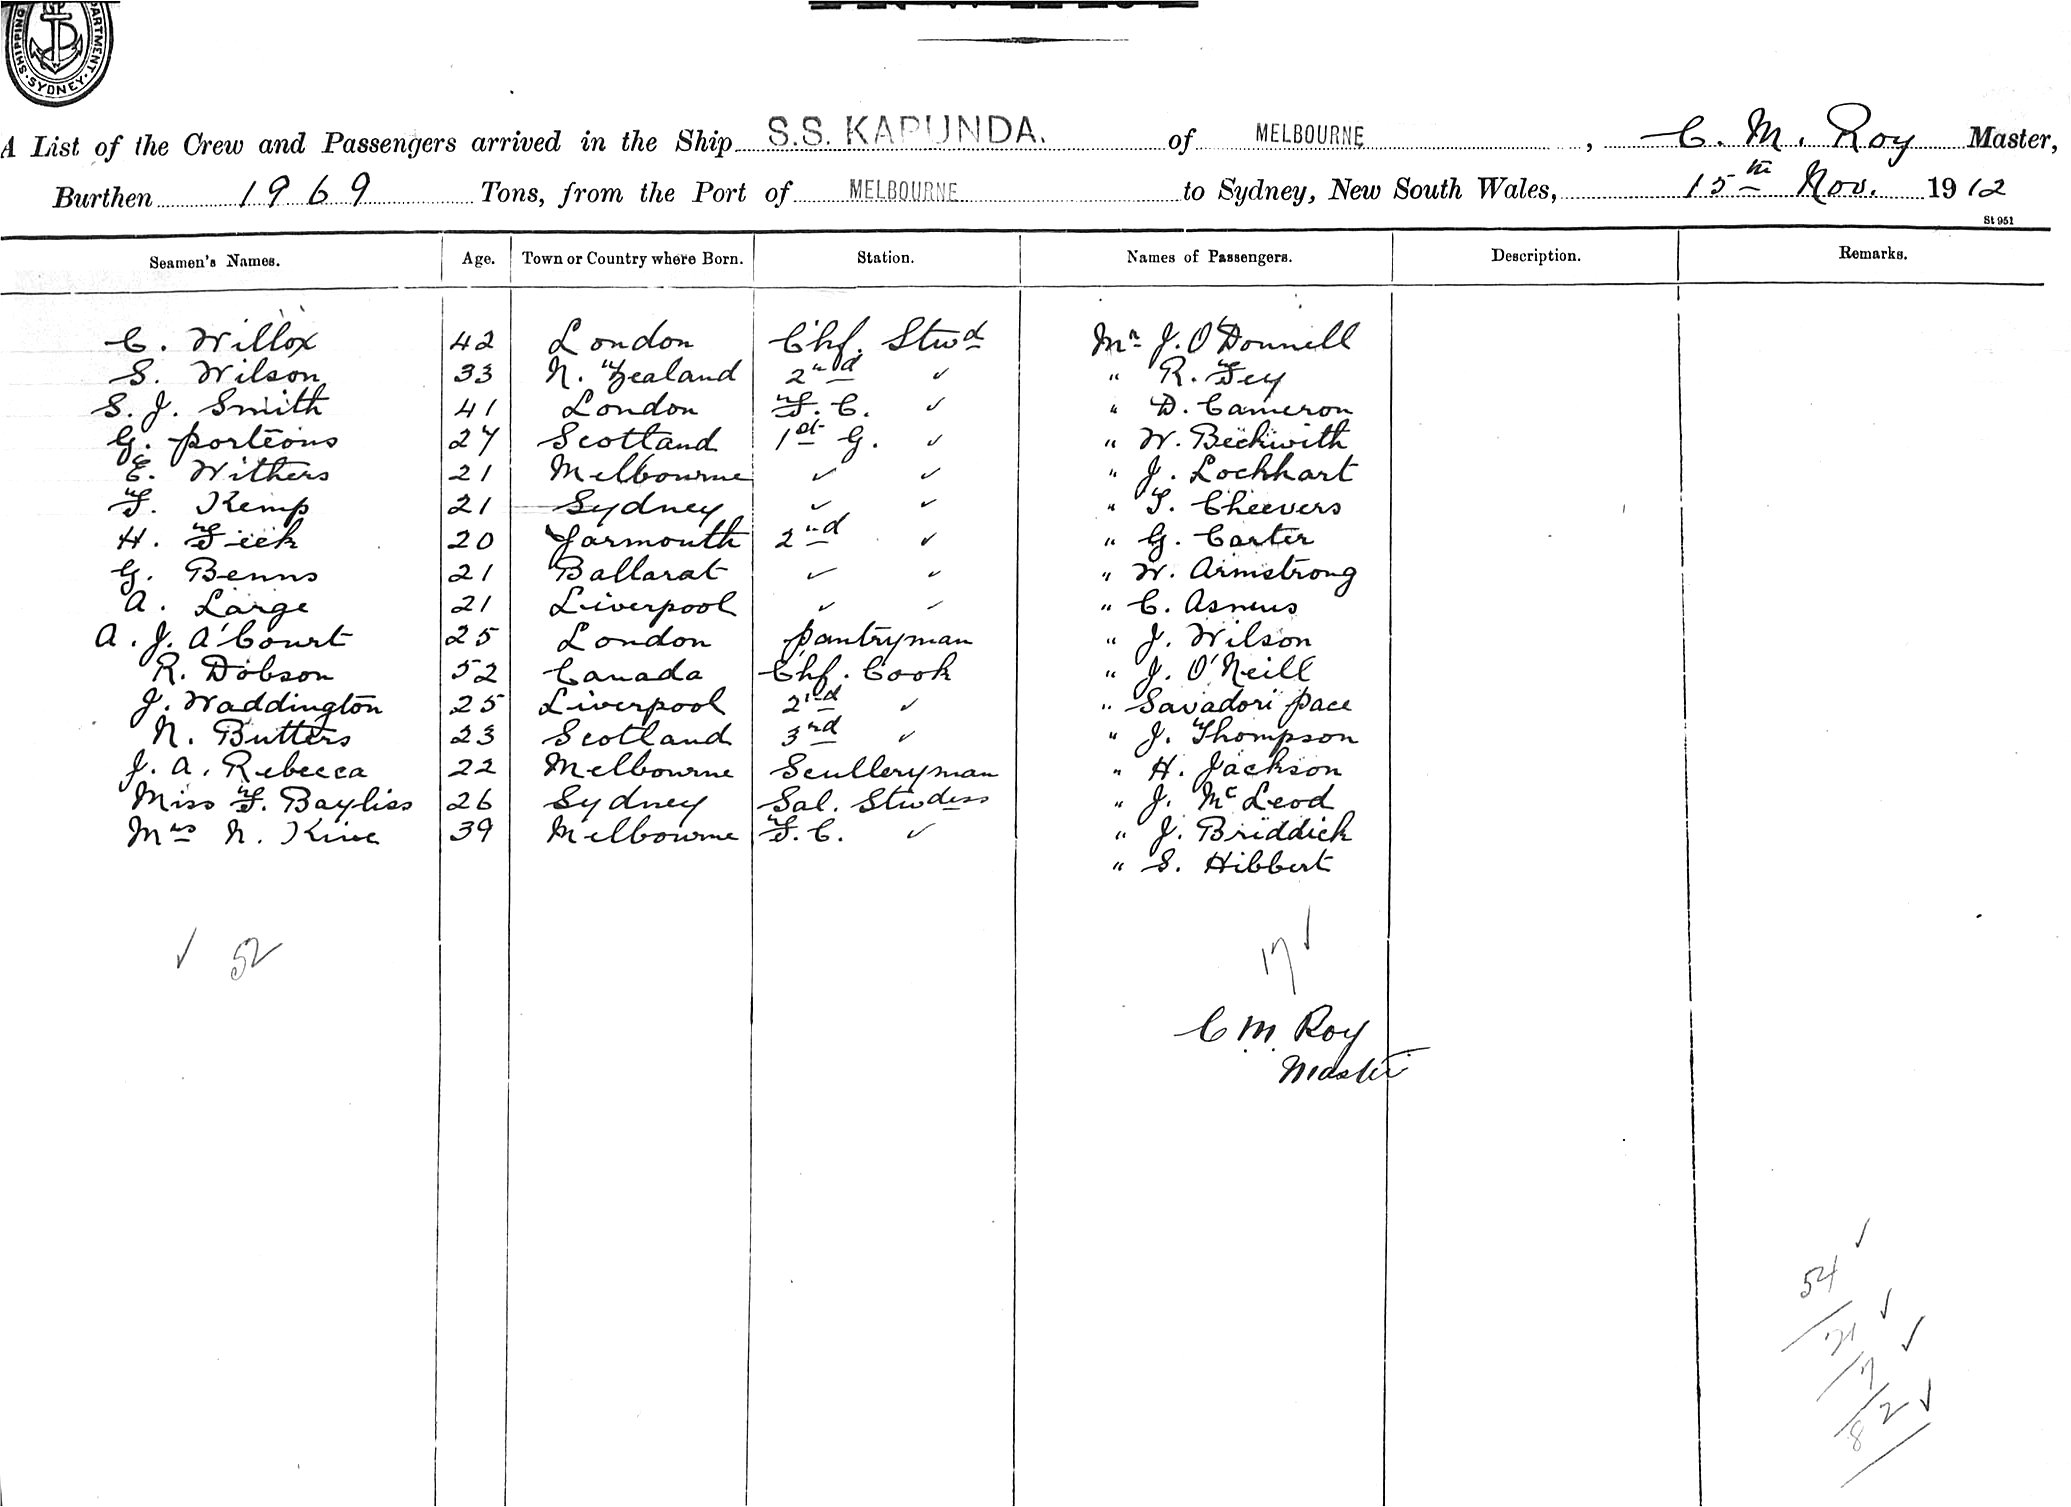 SHIPPING DEPARTMENT. SYDNEY
A List of the Crew and Passengers arrived in the Ship S.S. KAPUNDA. of MELBOURNE, C. M. Roy Master,
Burthen 1969 Tons, from the Port of MELBOURNE to Sydney, New South Wales, 15th Nov. 1912
St 951
Seamen's Names. Age. Town or Country where Born. Station. Names of Passengers. Description. Remarks.
C. Willox 42 London Chf. Stwd Mr J. O'Donnell
S. Wilson 33 N. Zealand 2nd ✓ " R. Fey
S. J. Smith 41 London F. C. ✓ " D. Cameron
G. Porteous 27 Scotland 1st G. ✓ " W. Beckwith
E. Withers 21 Melbourne ✓ ✓ " J. Lockhart
F. Kemp 21 Sydney ✓ ✓ " T. Cheevers
H. Feek 20 Yarmouth 2nd ✓ " G. Carter
G. Benns 21 Ballarat ✓ ✓ " W. Armstrong
A. Large 21 Liverpool ✓ ✓ " C. Asmus
A. J. A'Court 25 London Pantryman " J. Wilson
R. Dobson 52 Canada Chf. Cook " J. O'Neill
J. Waddington 25 Liverpool 2nd ✓ " Savadori Pace
N. Butters 23 Scotland 3rd ✓ " J. Thompson
J. A. Rebecca 22 Melbourne Sculleryman " H. Jackson
Miss F. Bayliss 26 Sydney Sal. Stwdess " J. McLeod
Mrs N. Kine 39 Melbourne F. C. ✓ " J. Briddick
" S. Hibbert
✓ 52 17 ✓
C M Roy
Master
54 ✓
✓
✓
82 ✓